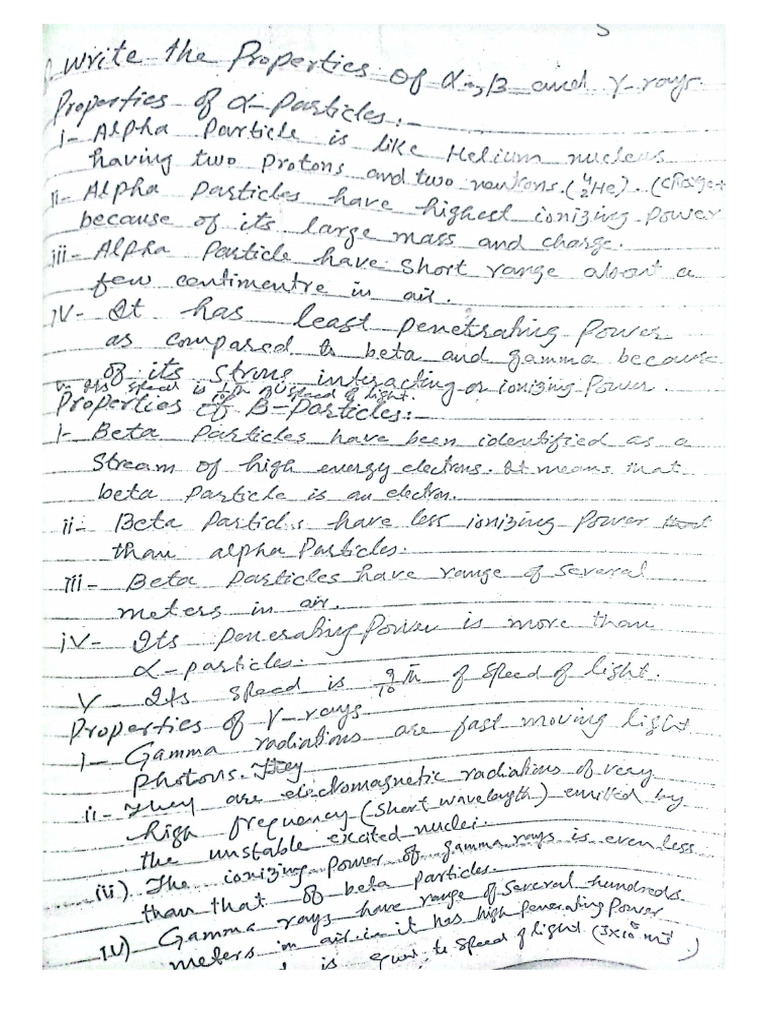 5
Write the Properties of α-, β and γ-rays.
Properties of α-Particles:-
i- Alpha Particle is like Helium nucleus
having two Protons and two neutrons. (⁴₂He). (charge+
ii- Alpha Particles have highest ionizing Power
because of its large mass and charge.
iii- Alpha Particle have short range about a
few centimentre in air.
iv- It has least penetrating Power
as compared to beta and gamma because
of its strong interacting or ionizing Power.
v- Its speed is 1/10 th of speed of light.
Properties of β-Particles:-
i- Beta Particles have been identified as a
Stream of high energy electrons. It means that
beta Particle is an electron.
ii- Beta Particles have less ionizing Power
than alpha Particles.
iii- Beta Particles have range of several
meters in air.
iv- Its penerating Power is more than
α-particles.
v Its speed is 9/10 th of speed of light.
Properties of γ-rays
i- Gamma radiations are fast moving light
photons. They
ii- They are electromagnetic radiations of very
high frequency (short wavelength) emitted by
the unstable excited nuclei.
iii) The ionizing power of gamma rays is even less
than that of beta particles.
iv) Gamma rays have range of several hundreds
meters in air. it has high penerating Power
is equal to speed of light (3x10⁸ ms⁻¹)